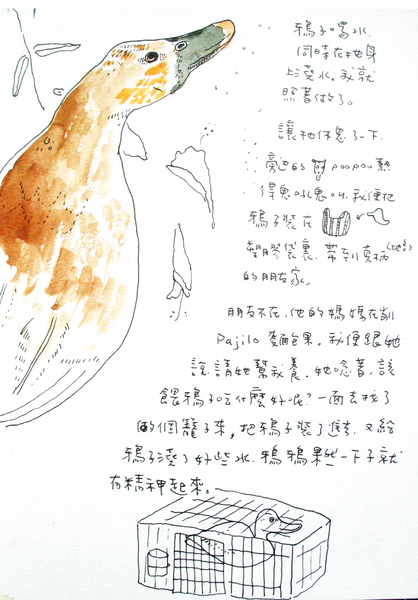 鴨子喝水
同時在她身
上澆水。我就
照著做了。
讓牠休息了一下.
旁邊的 poopou熱
得鬼叫鬼叫.我便把
鴨子裝在
塑膠袋裏.帶到真柄(地名)
的朋友家。
朋友不在.他的媽媽在削
Pajilo 麵包果。我便跟她
說.請她幫我養.她唸著.該
餵鴨子吃什麼好呢?一面去找了
個籠子來,把鴨子裝了進去.又給
鴨子澆了好些水.鴨鴨果然一下子就
有精神起來。